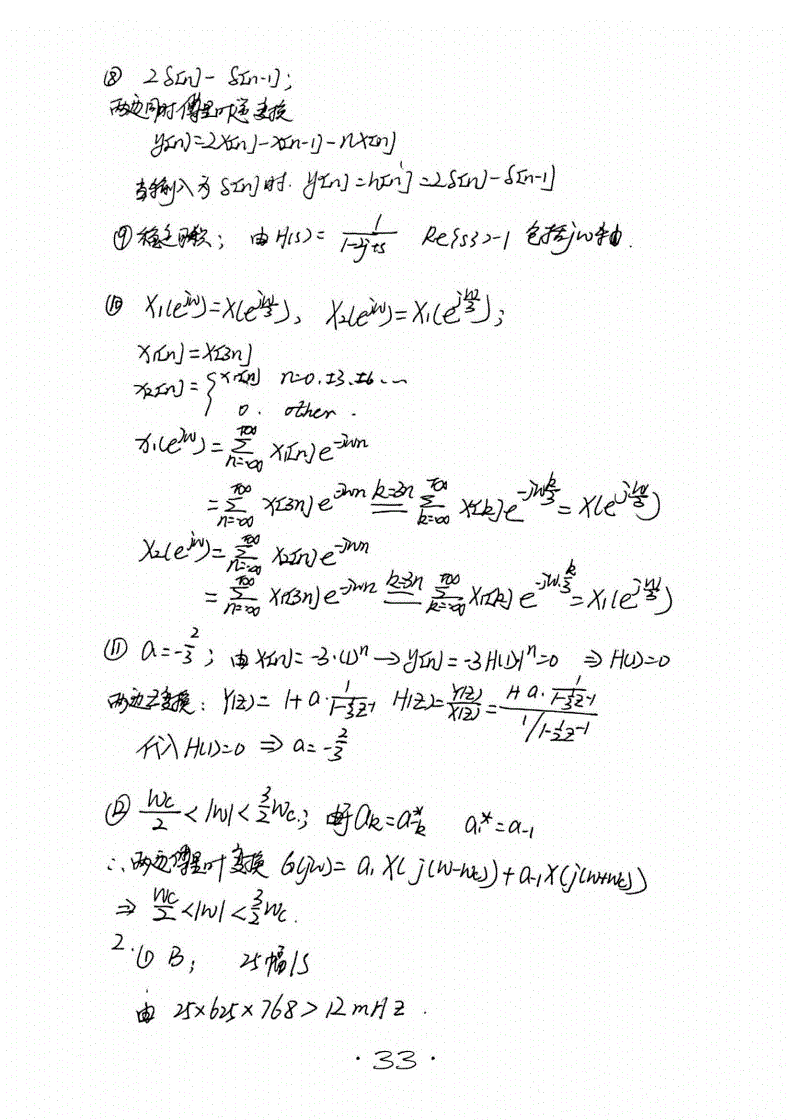 ⑧ 2δ[n]-δ[n-1];
两边同时傅里叶逆变换
y[n]=2x[n]-x[n-1]-nx[n]
当输入为δ[n]时. y[n]=h[n]=2δ[n]-δ[n-1]
⑨ 稳定; 由H(s)= 1/(1-2j+s) Re{s}>-1 包括jw轴.
⑩ X₁(e^{jw})=X(e^{jw/3}), X₂(e^{jw})=X₁(e^{jw/3});
x₁[n]=x[3n]
x₂[n]={x₁[n] n=0.±3.±6...
0. other.
X₁(e^{jw})=∑_{n=-∞}^{+∞} x₁[n]e^{-jwn}
=∑_{n=-∞}^{+∞} x[3n]e^{-jwn} k=3n == ∑_{k=-∞}^{+∞} x[k]e^{-jw k/3}=X(e^{jw/3})
X₂(e^{jw})=∑_{n=-∞}^{+∞} x₂[n]e^{-jwn}
=∑_{n=-∞}^{+∞} x₁[3n]e^{-jwn} k=3n == ∑_{k=-∞}^{+∞} x₁[k]e^{-jw·k/3}=X₁(e^{jw/3})
⑪ a=-2/3; 由x[n]=-3·(1)ⁿ→y[n]=-3H(1)1ⁿ=0 ⇒H(1)=0
两边Z变换: Y(z)=1+a·1/(1-⅓z⁻¹) H(z)=Y(z)/X(z)=(1+a·1/(1-⅓z⁻¹))/(1/(1-½z⁻¹))
代入H(1)=0 ⇒ a=-2/3
⑫ Wc/2<|w|<3/2 Wc; 由于a_k=a*_{-k} a₁*=a₋₁
∴两边傅里叶变换 G(jw)=a₁X(j(w-wc))+a₋₁X(j(w+wc))
⇒ Wc/2<|w|<3/2 Wc.
2. ⑴ B; 25幅/S
由 25×625×768>12mHz.
·33·